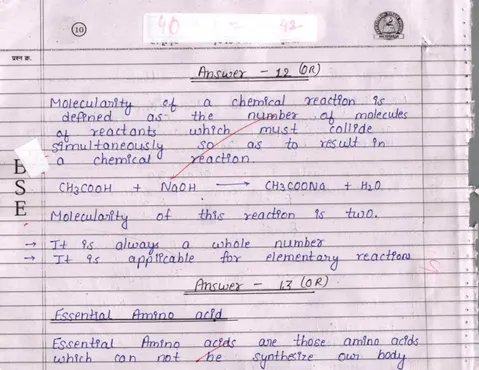 10
40 = 42
प्रश्न क्र.
Answer - 12 (OR)
Molecularity of a chemical reaction is
defined as the number of molecules
of reactants which must collide
simultaneously so as to result in
a chemical reaction.
B
S
E
CH3COOH + NaOH → CH3COONa + H2O
Molecularity of this reaction is two.
→ It is always a whole number
→ It is applicable for elementary reaction
Answer - 13 (OR)
Essential Amino acid
Essential Amino acids are those amino acids
which can not be synthesize our body